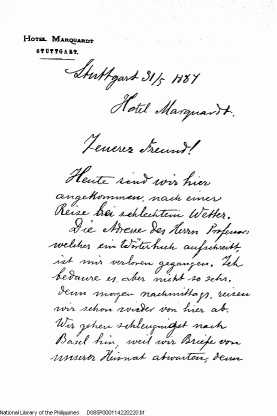 HOTEL MARQUARDT
STUTTGART.
Stuttgart 31/5 1887
Hotel Marquardt.
Teuerer Freund!
Heute sind wir hier
angekommen, nach einer
Reise bei schlechtem Wetter.
Die Adresse des Herrn Professors
welcher ein Wörterbuch aufschreibt
ist mir verloren gegangen. Ich
bedaure es aber nicht so sehr,
denn morgen nachmittags, reisen
wir schon wieder von hier ab.
Wir gehen schleunigst nach
Basel hin, weil wir Briefe von
unserer Heimat abwarten, denn
National Library of the Philippines